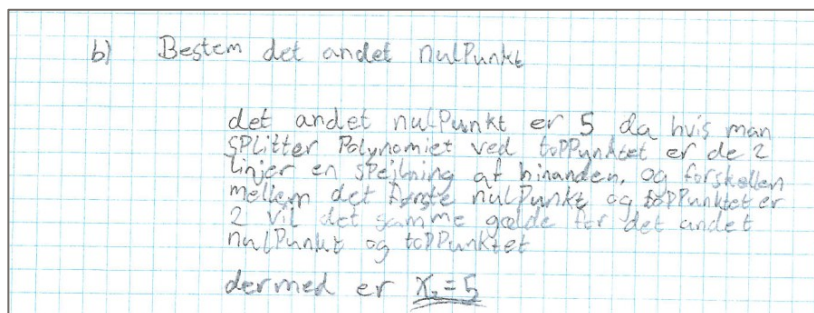 b) Bestem det andet nulPunkt
det andet nulPunkt er 5 da hvis man
SPLitter Polynomiet ved topPunktet er de 2
linjer en sPejlning af hinanden, og forskellen
mellem det første nulPunkt og topPunktet er
2 vil det samme gælde for det andet
nulPunkt og topPunktet
dermed er x₂=5